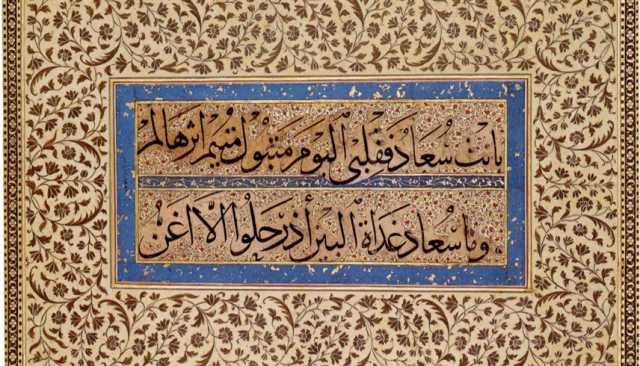 بانت سعاد فقلبي اليوم متبول متيم اثرها لم
وما سعاد غداة البين أذ رحلوا الا اغن